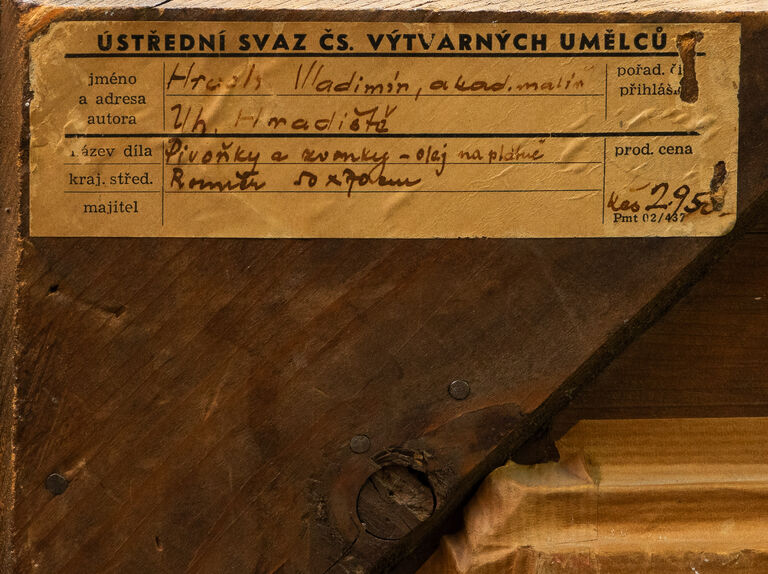 ÚSTŘEDNÍ SVAZ ČS. VÝTVARNÝCH UMĚLCŮ
jméno
a adresa
autora
Vladimír, akad. malíř
Uh. Hradiště
pořad. či
přihláš.
název díla Pivoňky a zvonky - olej na plátně
kraj. střed. Rozměr 50 x 70 cm
majitel
prod. cena
Kčs 2.950
Pmt 02/437